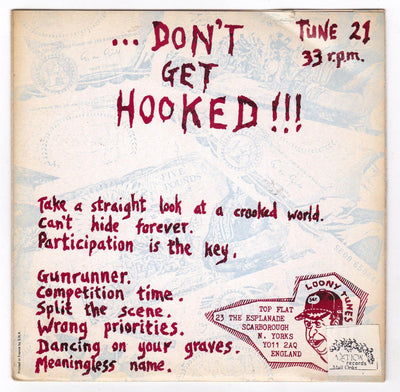 ...DON'T
GET
HOOKED!!!
TUNE 21
33 r.p.m.
Take a straight look at a crooked world.
Can't hide forever.
Participation is the key.
Gunrunner.
Competition time.
Split the scene.
Wrong priorities.
Dancing on your graves.
Meaningless name.
LOONY TUNES
TOP FLAT
23 THE ESPLANADE
SCARBOROUGH
N. YORKS
YO11 2AQ
ENGLAND
records
Mail Order
FIVE